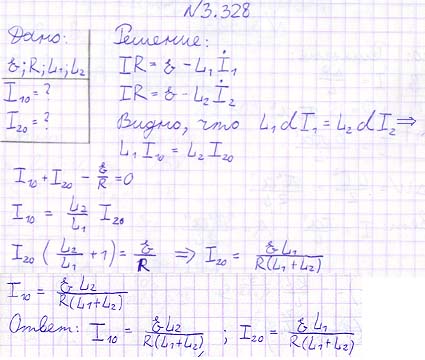 №3.328
Дано:
ℰ; R; L₁; L₂
I₁₀ = ?
I₂₀ = ?
Решение:
IR = ℰ - L₁ İ₁
IR = ℰ - L₂ İ₂
Видно, что L₁ d I₁ = L₂ d I₂ ⇒
L₁ I₁₀ = L₂ I₂₀
I₁₀ + I₂₀ - ℰ/R = 0
I₁₀ = L₂/L₁ I₂₀
I₂₀ (L₂/L₁ + 1) = ℰ/R ⇒ I₂₀ = ℰ L₁/R(L₁+L₂)
I₁₀ = ℰ L₂/R(L₁+L₂)
Ответ: I₁₀ = ℰL₂/R(L₁+L₂) ; I₂₀ = ℰ L₁/R(L₁+L₂)